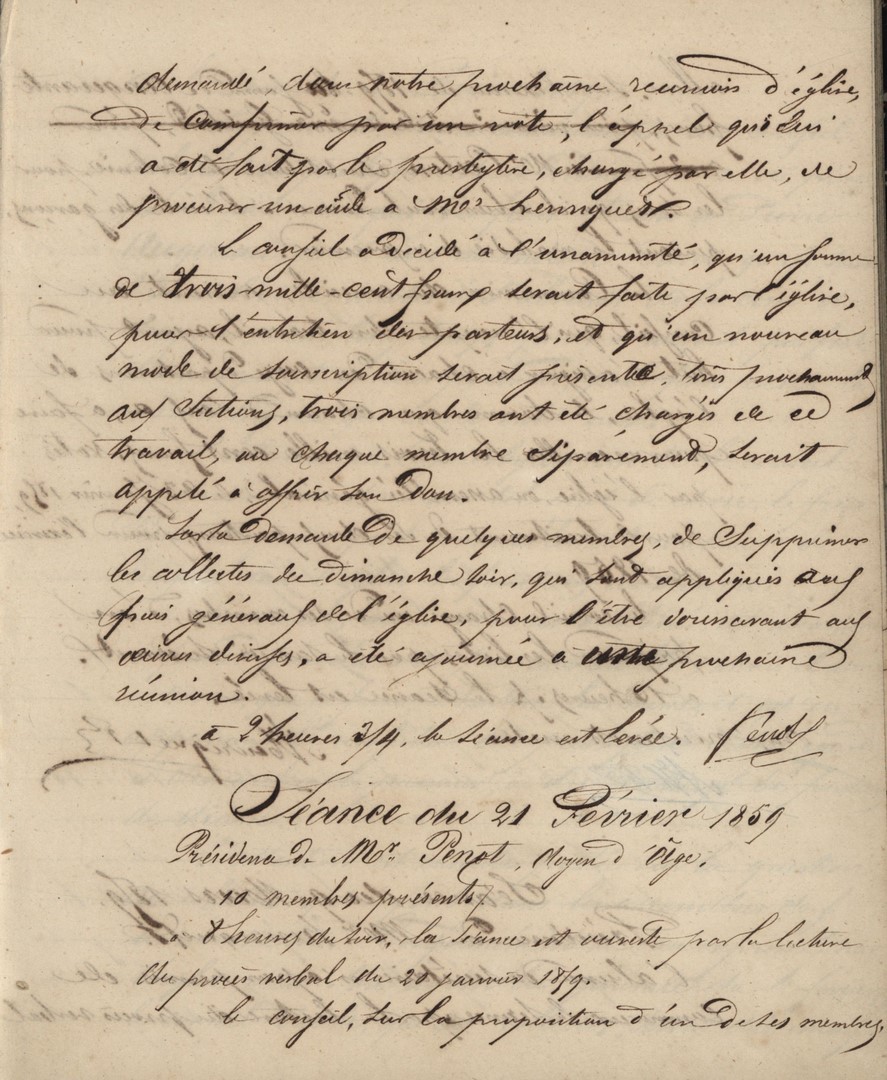 demandé, dans notre prochaine reunion d'église,
de comfirmer par un vote, l'appel qui lui
a été fait par le presbytère, chargé par elle, de
procurer un aide a Mr Henriquet.
Le conseil a décidé à l'unanimité, qu'un somme
de trois-mille-cent francs serait faite par l'église,
pour l'entretien des pasteurs, et qu'un nouveau
mode de souscription serait présenté, très prochainement
aux Sections, trois membres ont été chargés de ce
travail, ou chaque membre séparément, serait
appelé à offrir son don.
Sur la demande de quelques membres, de Supprimer
les collectes du dimanche soir, qui sont appliqués aux
frais généraux de l'église, pour l'être dorénavant aux
œuvres diverses, a été ajournée à une prochaine
réunion.
à 9 heures 3/4, la séance est levée. Penot
Séance du 21 Février 1859
Présidence de Mr. Penot, doyen d'âge.
10 membres présents
à 8 heures du soir, la séance est ouverte par la lecture
du procès verbal du 20 janvier 1859.
le conseil, sur la proposition d'un de ses membres,